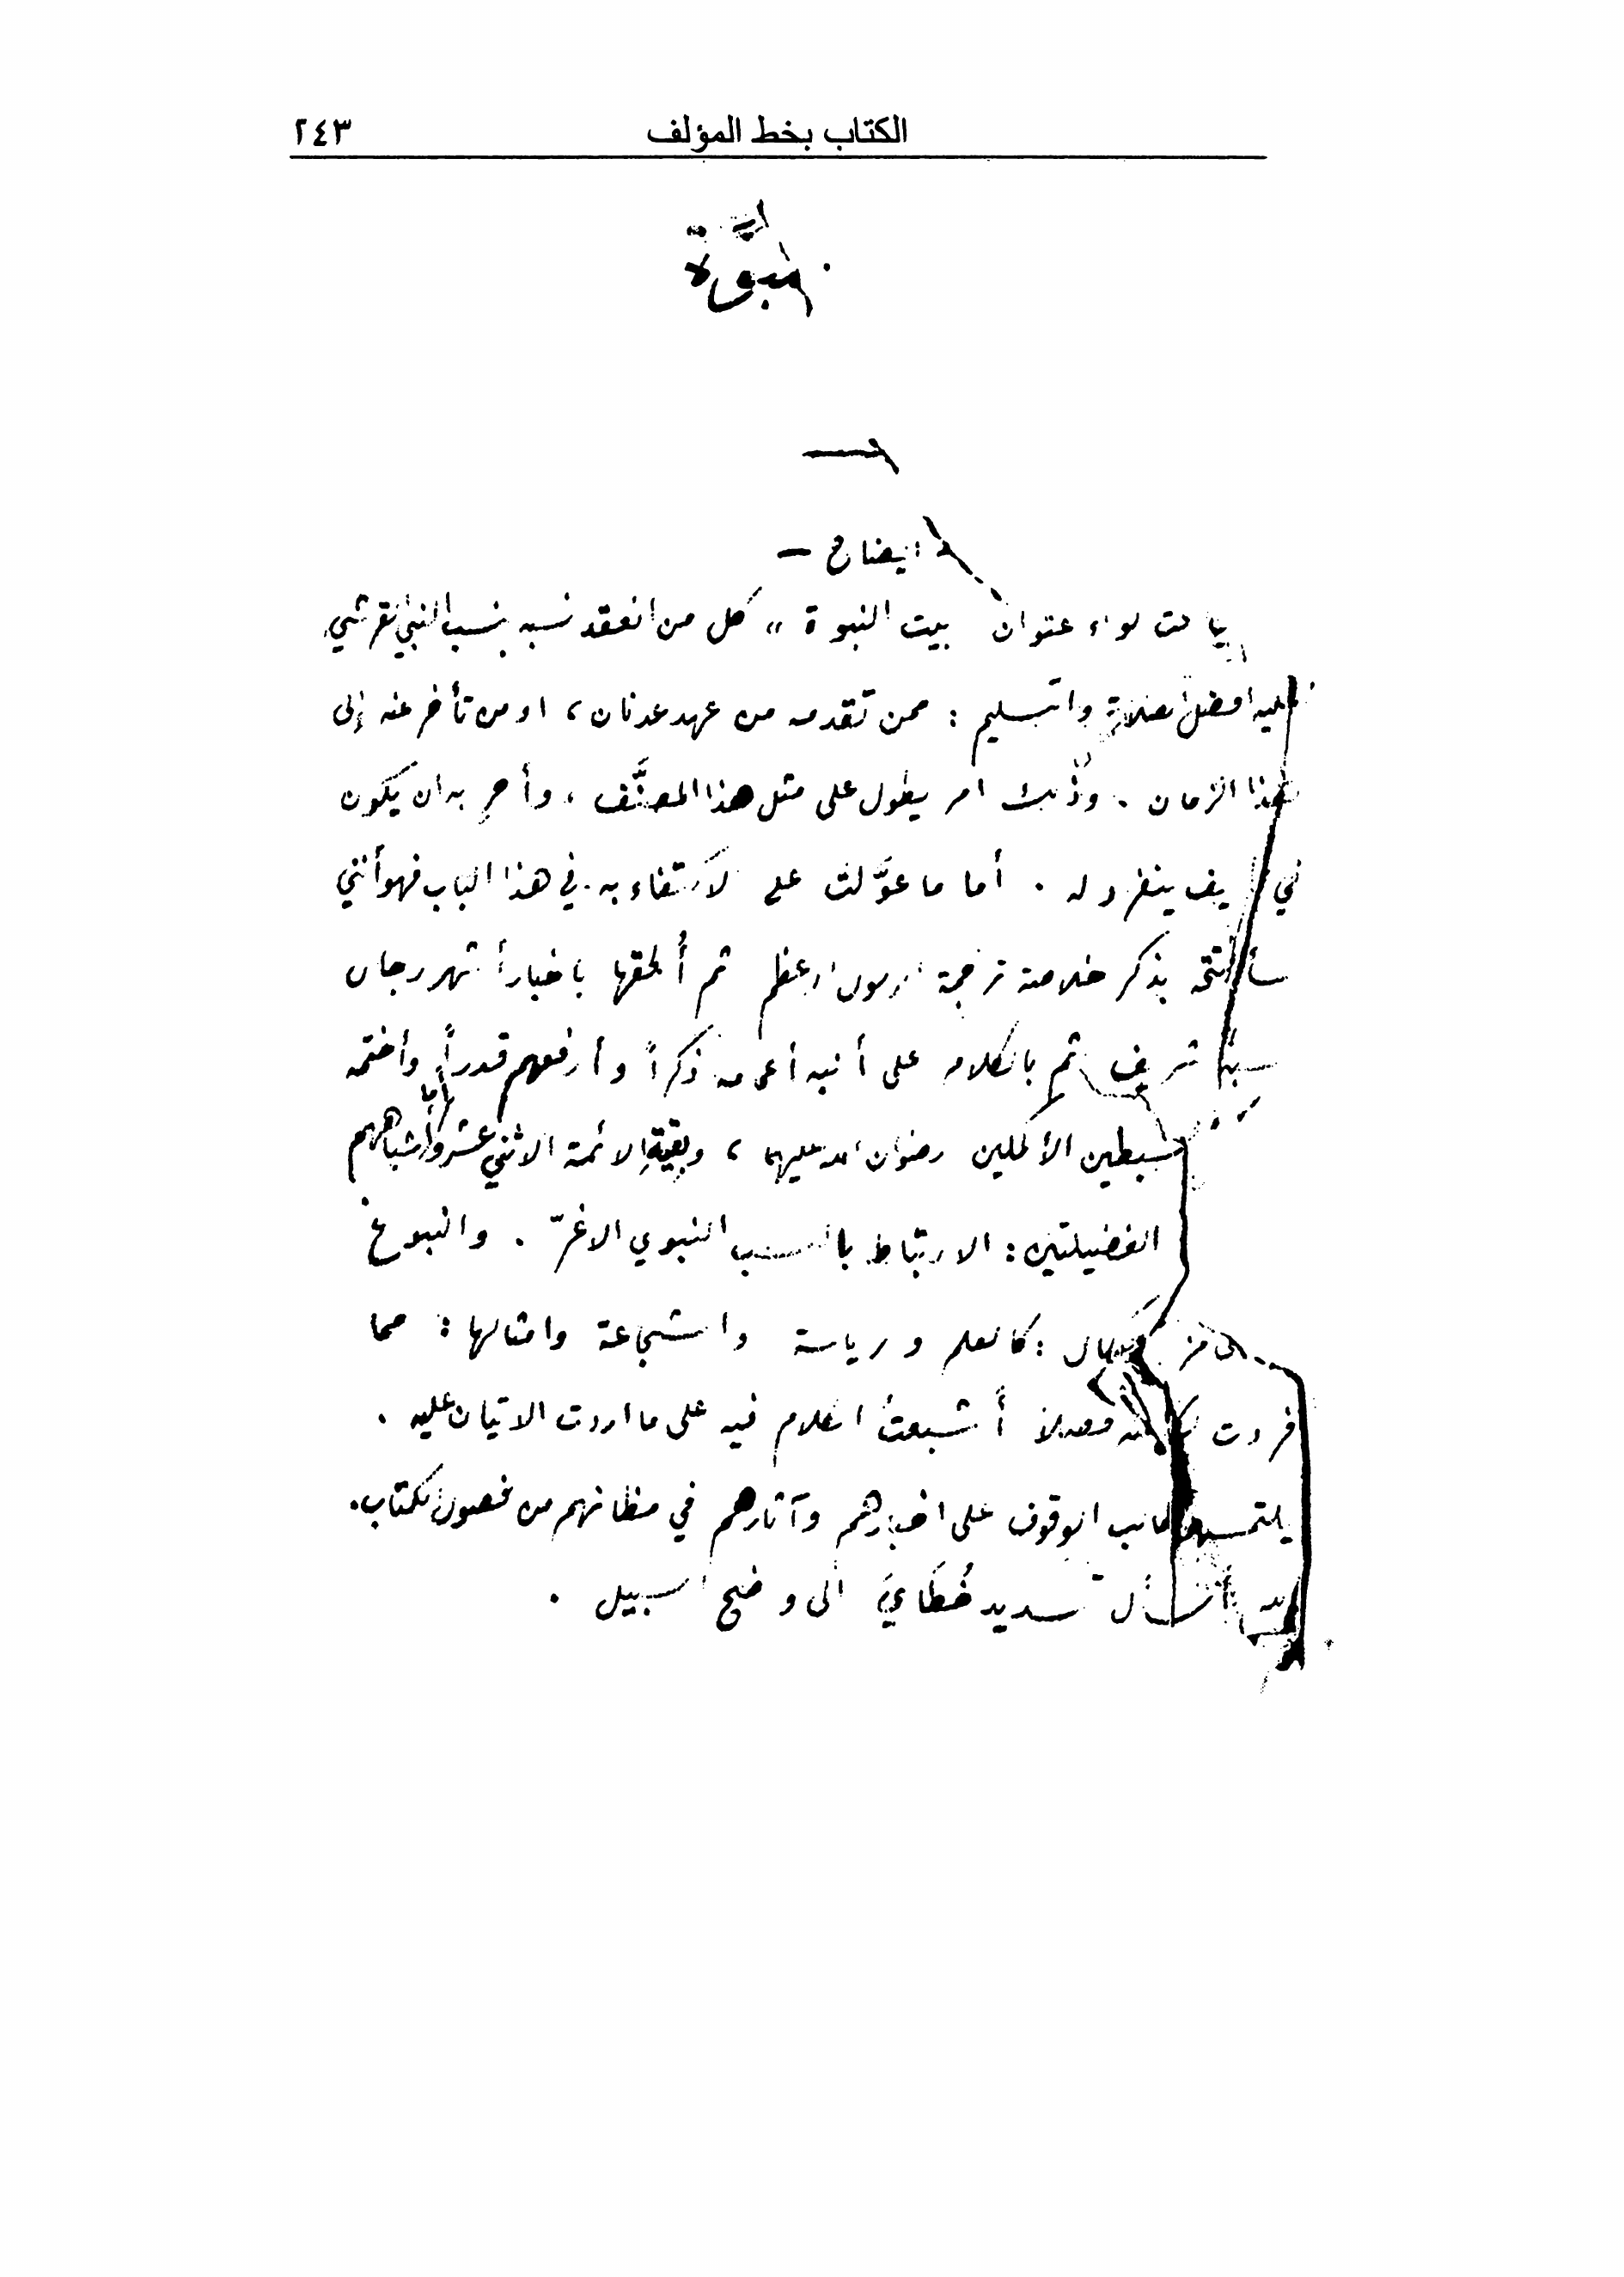 الكتاب بخط المؤلف ٢٤٣
النبوَّة
ايضاح –
لواء عنوان بيت النبوة « كل من انعقد نسبه بنسب النبي القرشي
عليه افضل الصلاة والتسليم : ممن تقدمه من عهد عدنان ، او من تأخر عنه إلى
هذا الزمان . وذلك امر يطول على مثل هذا المصنَّف ، وأحرِ به ان يكون
في ينفرد له . أما ما عوَّلت على الاكتفاء به في هذا الباب فهو أنني
بذكر خلاصة ترجمة الرسول الاعظم ثم أُلحقها باخبار أشهر رجال
ثم بالكلام على أنبه أعمامه ذكراً وأرفعهم قدراً وأختمه
السبطين الأكملين رضوان الله عليهما ، وبقيةِ الائمة الاثني عشر وأشباههم
الفضيلتين : الارتباط بالنسب النبوي الاغرّ . والنبوغ
الكمال : كالعلم والرياسة والشجاعة وامثالها : مما
فصلاً أشبعت الكلام فيه على ما اردت الاتيان عليه .
الوقوف على اخبارهم وآثارهم في مظانهم من فصول الكتاب .
أسأل تسديد خُطايَ الى وضح السبيل .